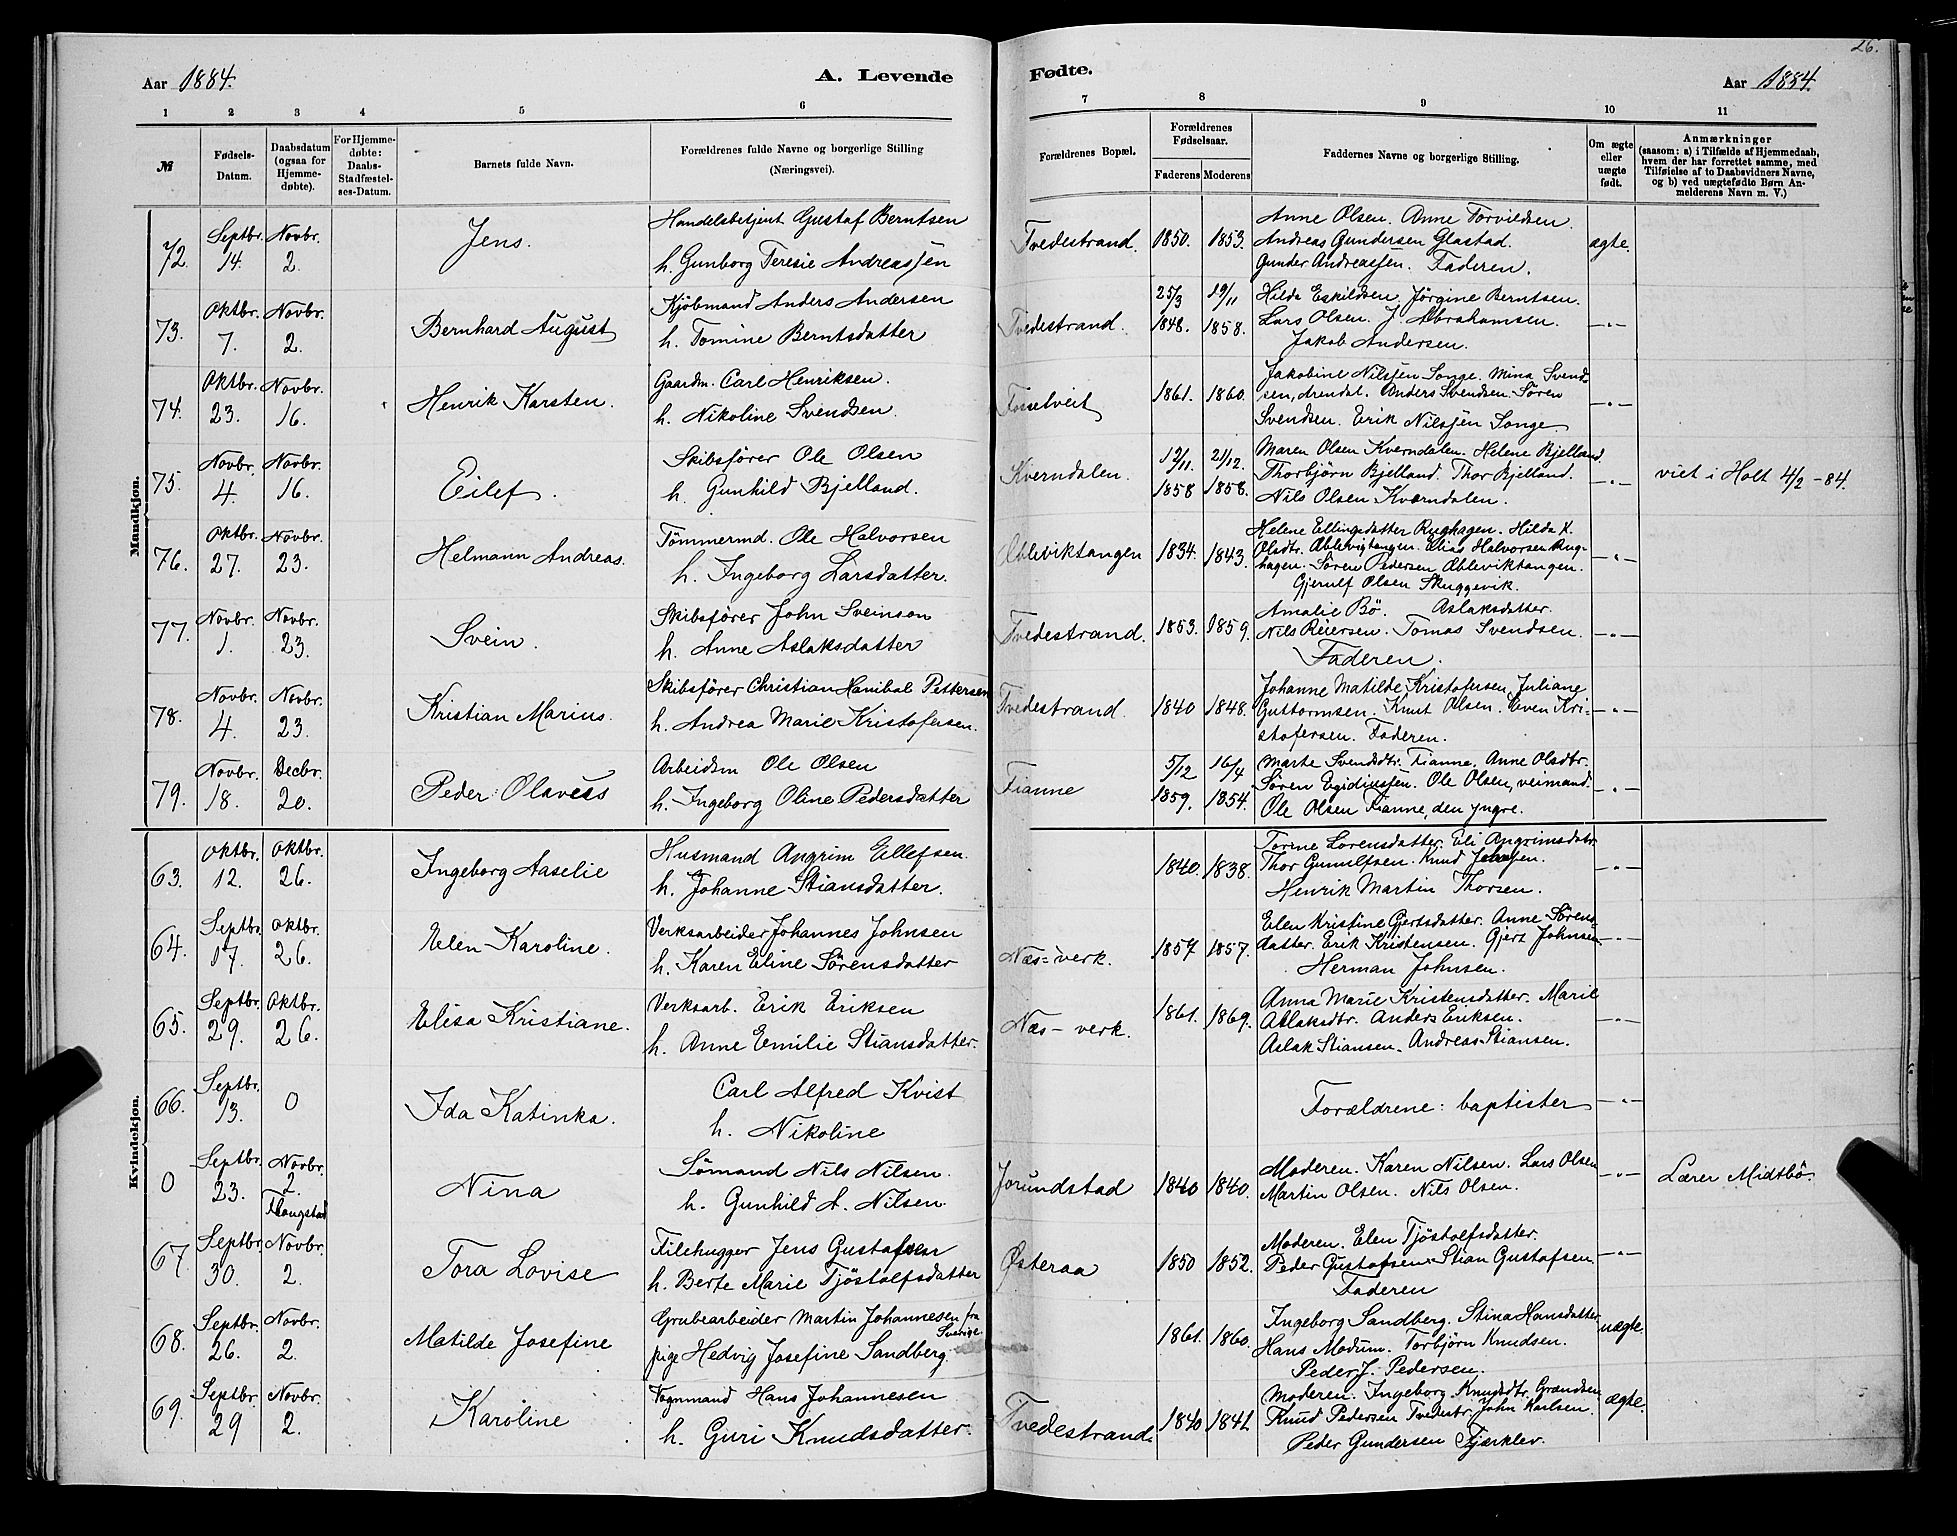 26.
Aar 1884.
A. Levende
Fødte.
Aar 1884.
1 2 3 4 5 6 7 8 9 10 11
№
Fødsels-Datum.
Daabsdatum (ogsaa for Hjemmedøbte).
For Hjemmedøbte: Daabs-Stadfæstelses-Datum.
Barnets fulde Navn.
Forældrenes fulde Navne og borgerlige Stilling (Næringsvei).
Forældrenes Bopæl.
Forældrenes Fødselsaar.
Faderens Moderens
Faddernes Navne og borgerlige Stilling.
Om ægte eller uægte født.
Anmærkninger
(saasom: a) i Tilfælde af Hjemmedaab,
hvem der har forrettet samme, med
Tilføielse af to Daabsvidners Navne,
og b) ved uægtefødte Børn An-
melderens Navn m. V.)
Mandkjøn.
72. Septbr. 14. Novbr. 2. Jens.
Handelsbetjent Gustaf Berntsen
h. Gunborg Teresie Andreassen
Tvedestrand. 1850. 1853.
Anne Olsen. Anne Torvildsen
Andreas Gundersen Glastad.
Gunder Andreassen. Faderen.
ægte.
73. Oktbr. 7. Novbr. 2. Bernhard August
Kjøbmand Anders Andersen
h. Tomine Berntsdatter
Tvedestrand. 25/3 1848. 19/11 1858.
Hilda Eskildsen. Jörgine Berntsen.
Lars Olsen. J. Abrahamsen.
Jakob Andersen.
—„—
74. Oktbr. 23. Novbr. 16. Henrik Karsten.
Gaardm. Carl Henriksen.
h. Nikoline Svendsen.
Fosselveit 1861. 1860.
Jakobine Nilsen Songe. Mina Svend-
sen, Arendal. Anders Svendsen. Sören
Svendsen. Erik Nilsen Songe.
—„—
75. Novbr. 4. Novbr. 16. Eilef.
Skibsfører Ole Olsen
h. Gunhild Bjelland.
Kverndalen. 12/11 1858 21/12. 1858.
Maren Olsen Kverndalen. Helene Bjelland.
Thorbjörn Bjelland. Thor Bjelland.
Nils Olsen Kverndalen.
—„—
viet i Holt 4/2 -84.
76. Oktbr. 27. Novbr. 23. Helmann Andreas.
Tömmermd. Ole Halvorsen
h. Ingeborg Larsdatter.
Ableviktangen 1834. 1843.
Helene Ellingsdatter Rughagen. Hilda K.
Olsdtr. Ablevigtangen. Elias Halvorsen Rug-
hagen. Sören Pedersen Ableviktangen.
Gjerulf Olsen Skuggevik.
—„—
77. Novbr. 1. Novbr. 23. Svein.
Skibsfører John Sveinson
h. Anne Aslaksdatter
Tvedestrand. 1853. 1859.
Amalie Bö. Aslaksdatter.
Nils Reiersen. Tomas Svendsen.
Faderen.
—„—
78. Novbr. 4. Novbr. 23. Kristian Marius.
Skibsfører Christian Hanibal Pettersen
h. Andrea Marie Kristofersen.
Tvedestrand. 1840 1848.
Johanne Matilde Kristofersen, Juliane
Guttormsen. Knut Olsen. Even Kri-
stofersen. Faderen.
—„—
79. Novbr. 18. Decbr. 20. Peder Olaves
Arbeidsm Ole Olsen
h. Ingeborg Oline Pedersdatter
Fianne 5/12 1859. 16/4 1854.
Marte Svendsdtr. Fianne. Anne Olsdtr.
Sören Egidiussen. Ole Olsen, veimand.
Ole Olsen Fianne, den yngre.
—„—
Kvindekjøn.
63. Oktbr. 12. Oktbr. 26. Ingeborg Aaselie
Husmand Angrim Ellefsen.
h. Johanne Stiansdatter.
1840. 1838.
Tomine Lorensdatter. Eli Angrimsdatr.
Thor Gunulfsen. Knud
Henrik Martin Thorsen.
—„—
64. Septbr. 17. Oktbr. 26. Elen Karoline.
Verksarbeider Johannes Johnsen
h. Karen Eline Sörensdatter
Næs=verk. 1857 1857.
Elen Kristine Gjertsdatter. Anne Sörens-
datter. Erik Kristensen. Gjert Johnsen
Herman Johnsen.
—„—
65. Septbr. 29. Oktbr. 26. Elisa Kristiane.
Verksarb. Erik Eriksen
h. Anne Emilie Stiansdatter.
Næs-verk. 1861. 1869.
Anna Marie Kristensdatter. Marie
Aslaksdtr. Anders Eriksen.
Aslak Stiansen. Andreas Stiansen.
—„—
66. Septbr. 13. 0 Ida Katinka.
Carl Alfred Kvist
h. Nikoline
Forældrene: baptister
—„—
0 Septbr. 23. Novbr. 2. Flaugstad Nina
Sömand Nils Nilsen.
h. Gunhild A. Nilsen.
Jorundstad 1840 1840.
Moderen. Karen Nilsen. Lars Olsen
Martin Olsen. Nils Olsen.
—„—
Lærer Midtbö.
67. Septbr. 30. Novbr. 2. Tora Lovise
Filehugger Jens Gustafsen
h. Berte Marie Tjöstolfsdatter
Østeraa 1850 1852.
Moderen. Elen Tjöstolfsdatter.
Peder Gustafsen. Stian Gustafsen
Faderen
—„—
68. Septbr. 26. Novbr. 2. Matilde Josefine
Grubearbeider Martin Johannesen fra Sverige.
pige Hedvig Josefine Sandberg.
1861. 1860.
Ingeborg Sandberg. Stina Hansdatter
Hans Modum. Torbjörn Knudsen.
Peder J. Pedersen.
uægte.
69. Septbr. 29 Novbr. 2. Karoline
Vognmand Hans Johannesen
h. Guri Knudsdatter.
Tvedestrand. 1840 1841
Moderen. Ingeborg Knudsdtr. Grændsen
Knud Pedersen Tvedestr. John Karlsen.
Peder Gundersen Fjærklev.
ægte.